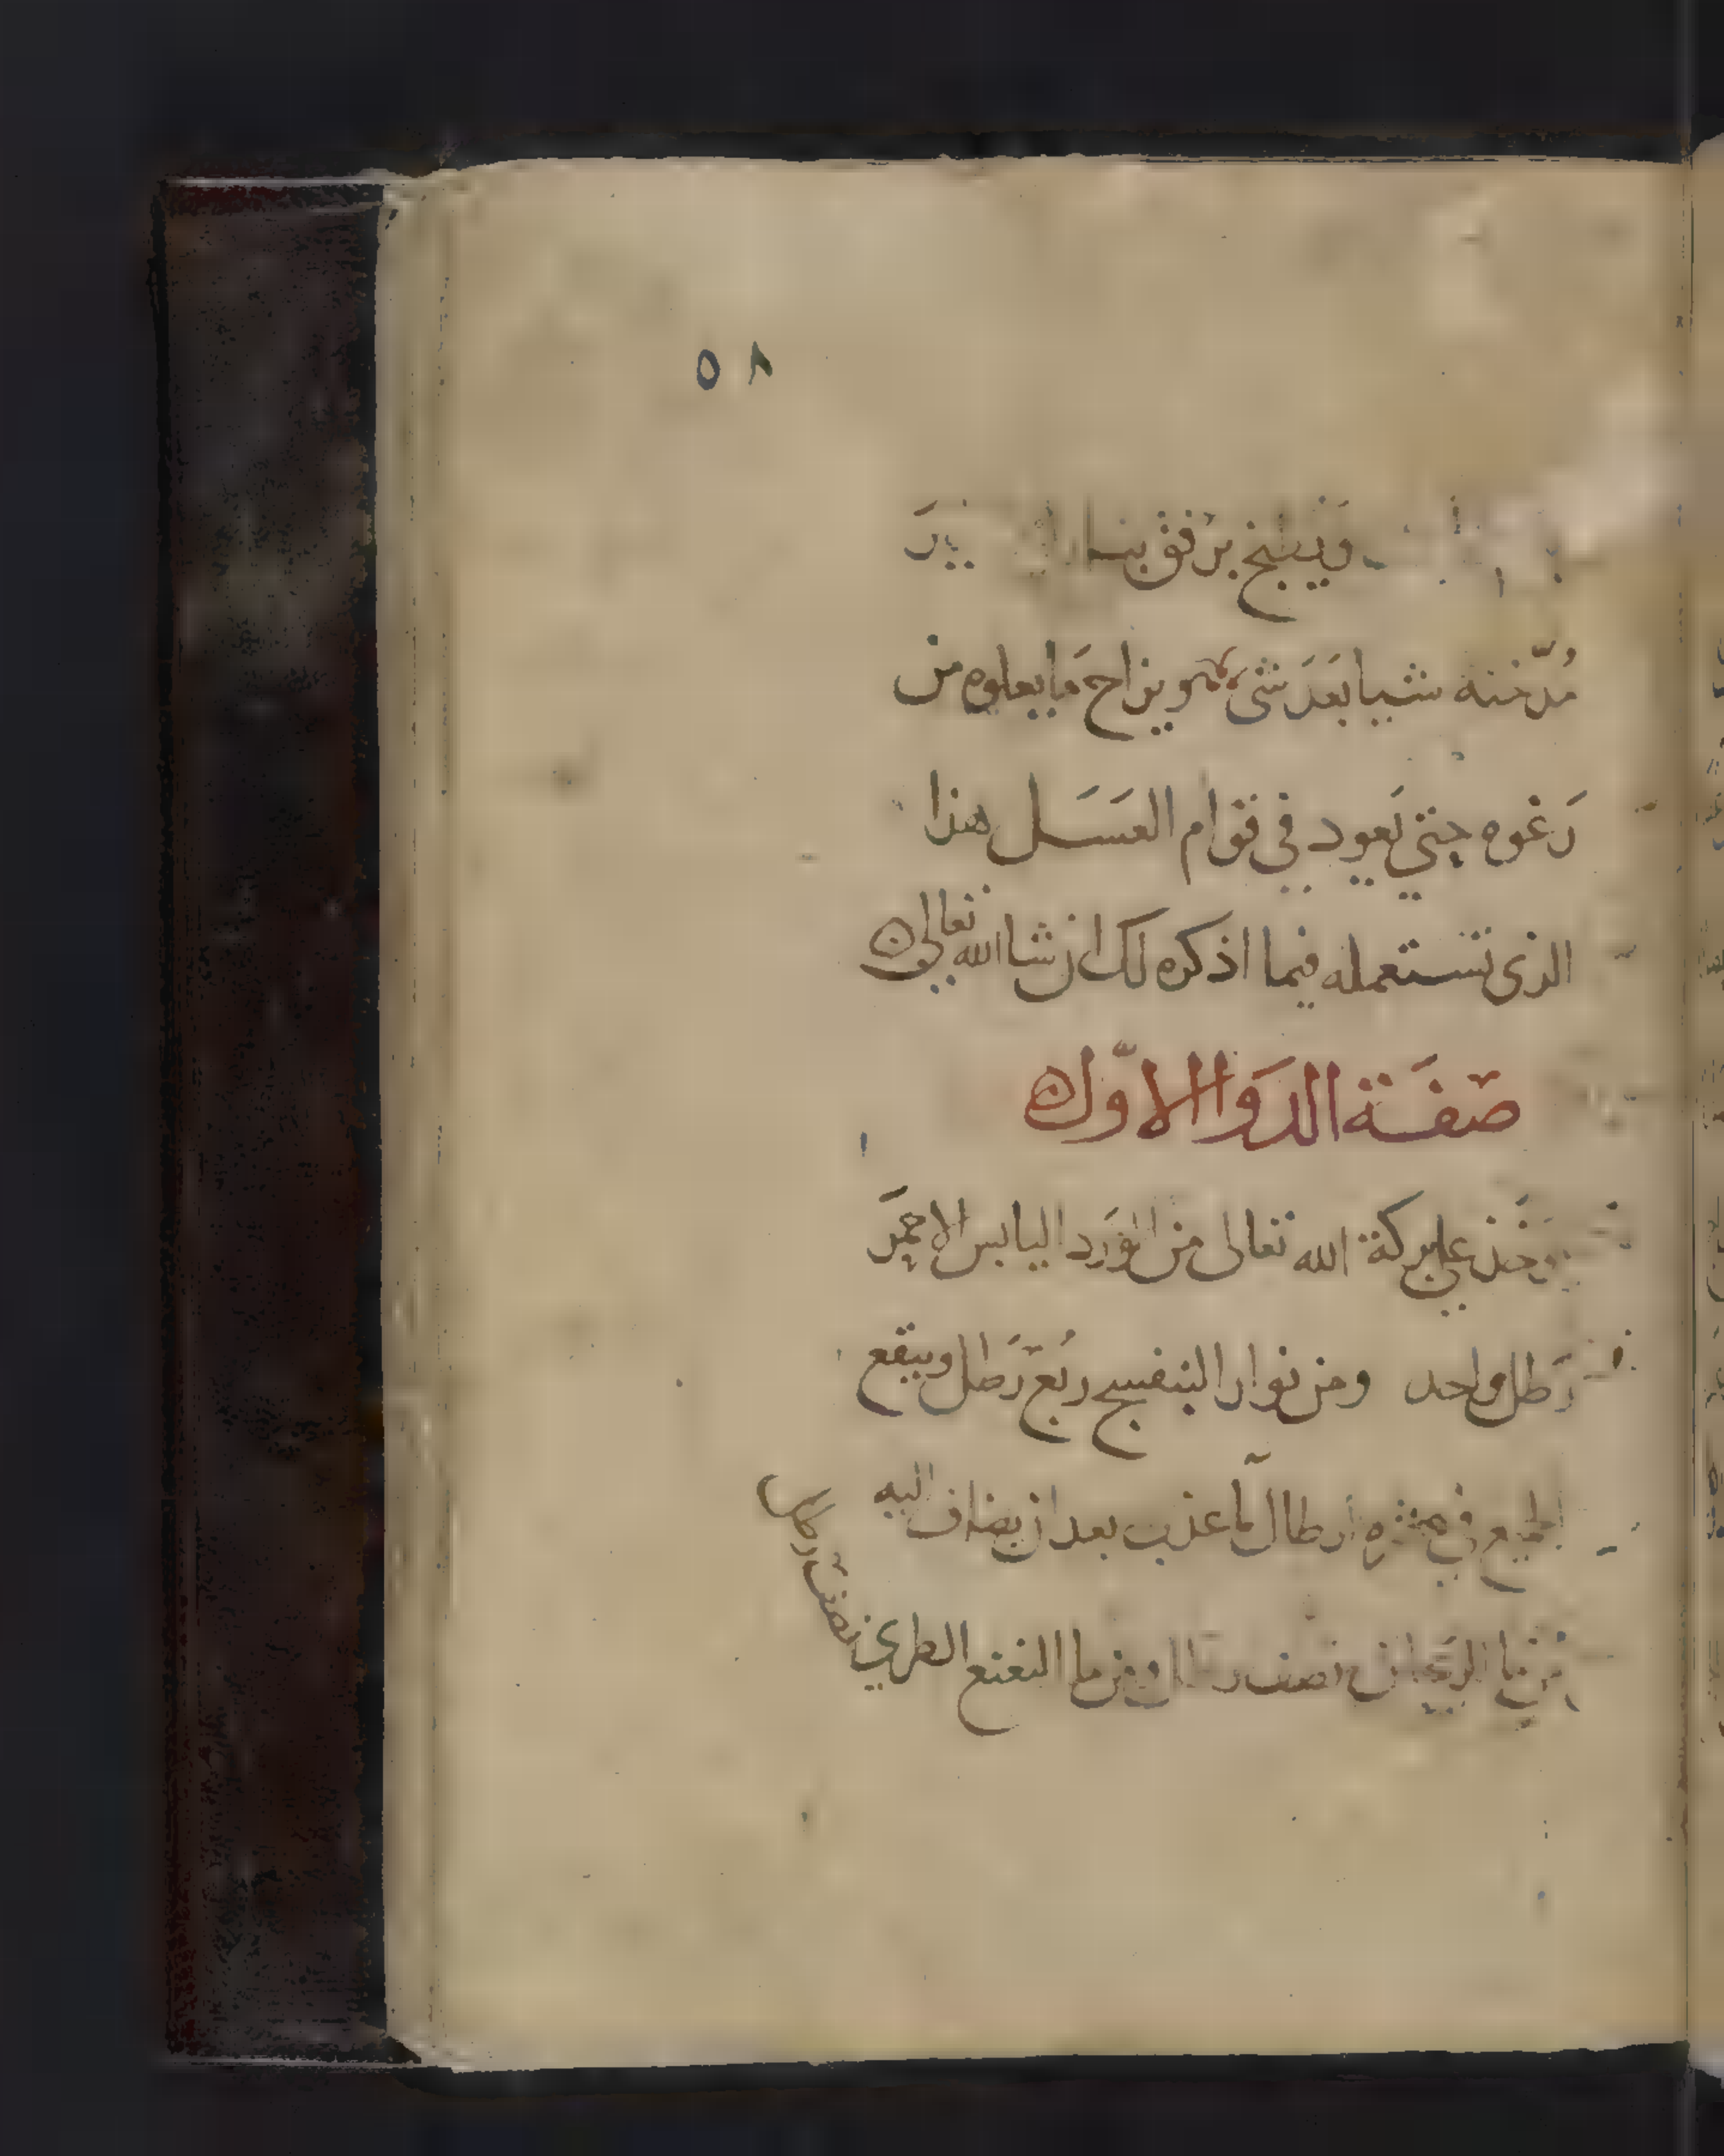 ٥٨
ويطبخ برفق
مُدّخنه شيا بَعَدَ شى ويزاح مَا يعلوه من
رَغوه حتى يَعود فى قوام العَسَل هذا
الذى تستعمله فيما اذكره لك ان شا الله تعالى
صفَة الدوَا الاوّل
يوخَذ على بركة الله تعالى من الوَرد اليابس الاحمَر
رَطل واحد ومن نوار البنفسج ربُع رَطل وينقع
الجميع فى عشره ارطال مآ عذب بعد ان يضاف اليه
من ما الريحان نصف رطل ومن ما النعنع الطرى نصف رطل